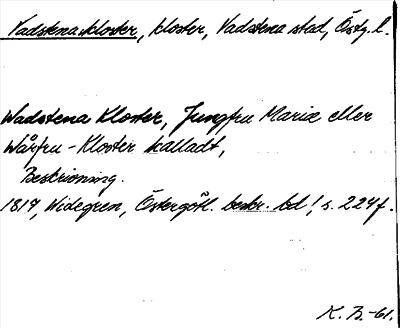 Vadstena kloster, kloster, Vadstena stad, Östg. l.
Wadstena Kloster, Jungfru Mariæ eller
Wårfru-Kloster kalladt,
Beskrivning.
1817, Widegren, Östergötl. beskr. bd 1, s. 224 f.
K. B.-61.